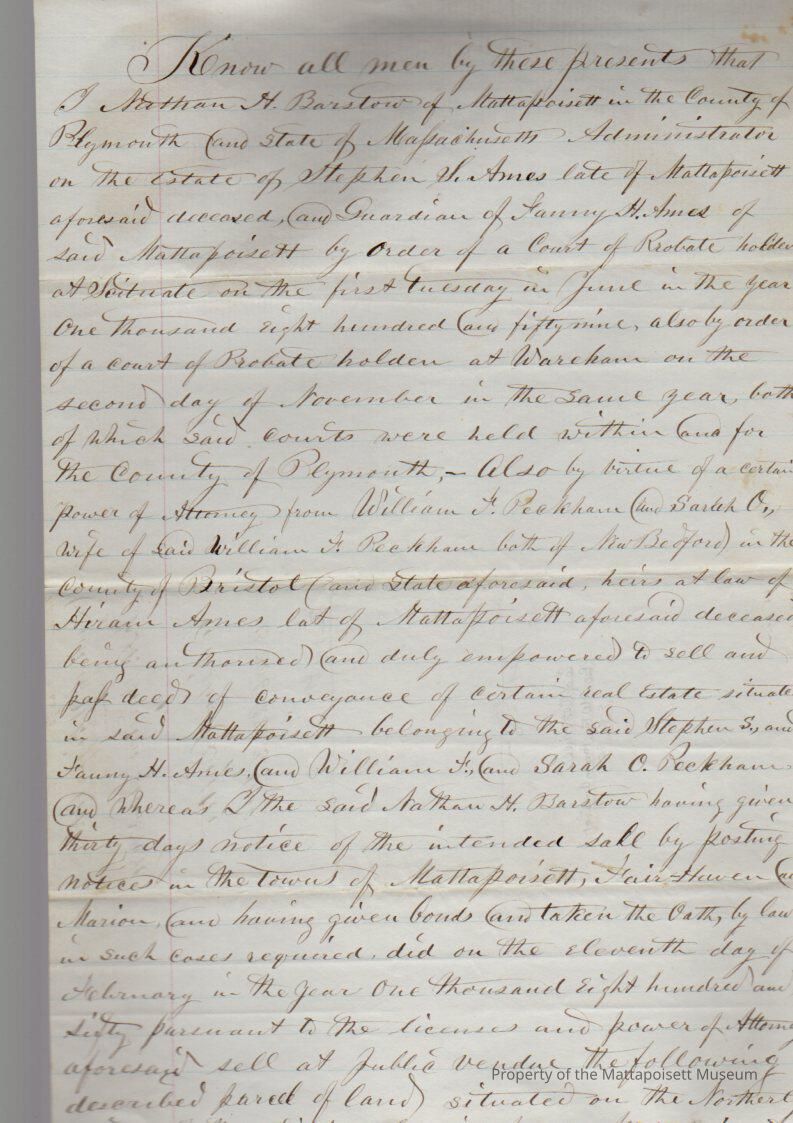 Know all men by these presents that
I Nathan H. Barstow of Mattapoisett in the County of
Plymouth and State of Massachusetts Administrator
on the Estate of Stephen S. Ames late of Mattapoisett
aforesaid deceased, and Guardian of Fanny H. Ames of
said Mattapoisett by order of a Court of Probate holden
at Scituate on the first tuesday in June in the year
One thousand Eight hundred and fifty nine, also by order
of a court of Probate holden at Wareham on the
second day of November in the same year, both
of which said courts were held within and for
the County of Plymouth, – Also by virtue of a certain
power of Attorney from William F. Peckham and Sarah C.,
wife of said William F. Peckham both of New Bedford in the
county of Bristol and State aforesaid, heirs at law of
Hiram Ames lat of Mattapoisett aforesaid deceased
being authorised and duly empowered to sell and
pass deeds of conveyance of certain real Estate situate
in said Mattapoisett belonging to the said Stephen S., and
Fanny H. Ames, and William F., and Sarah C. Peckham
and whereas I the said Nathan H. Barstow having given
thirty days notice of the intended sale by posting
notices in the towns of Mattapoisett, Fair Haven
Marion, and having given bonds and taken the Oath, by law
in such cases required, did on the eleventh day of
February in the year One thousand Eight hundred and
sixty pursuant to the licenses and power of Attorney
aforesaid sell at public vendue the following
described parcel of land situated on the Northerl
Property of the Mattapoisett Museum